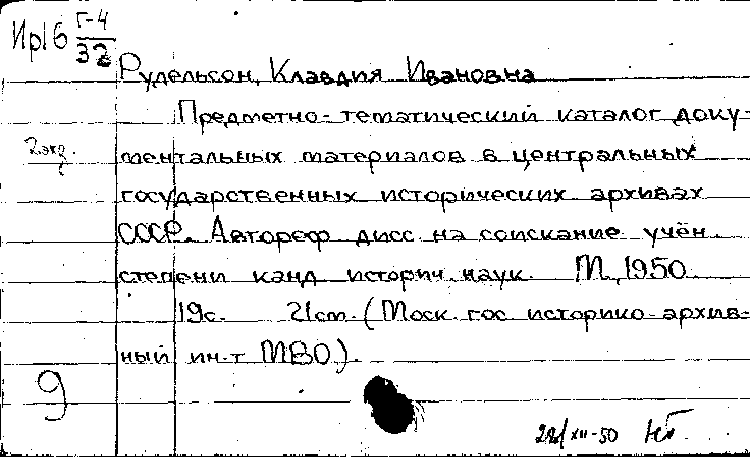 Ир16 Г-4/32
Рудельсон, Клавдия Ивановна
Предметно-тематический каталог доку-
2 экз.
ментальных материалов в центральных
государственных исторических архивах
СССР. Автореф дисс на соискание учён.
степени канд историч. наук. М, 1950
19с. 21см. (Моск. гос. историко-архив-
ный ин-т МВО).
9
XII-50